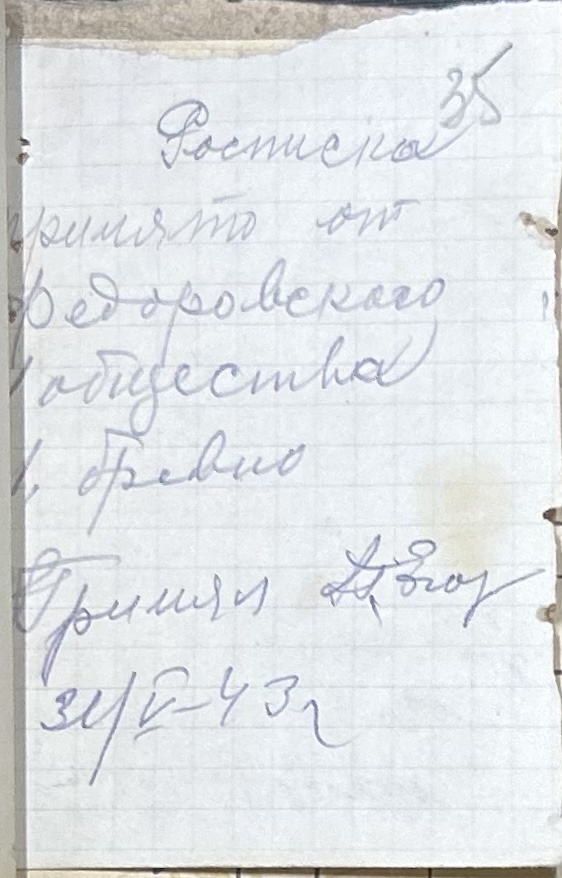 35
Росписка
принято от
Федоровского
общества
1, бревно
Принял
31/V-43г